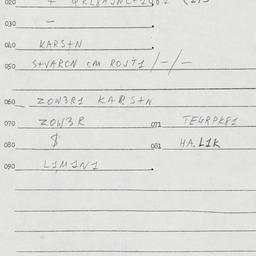 020
030 —
040 KARS+N
050 S+VARCN CM ROJT1 /-/-
060 ZOW3R1 KARS+N
070 ZOW3R 071 TE4RPK81
080 $ 081 HA.L1K
090 L1M1N1